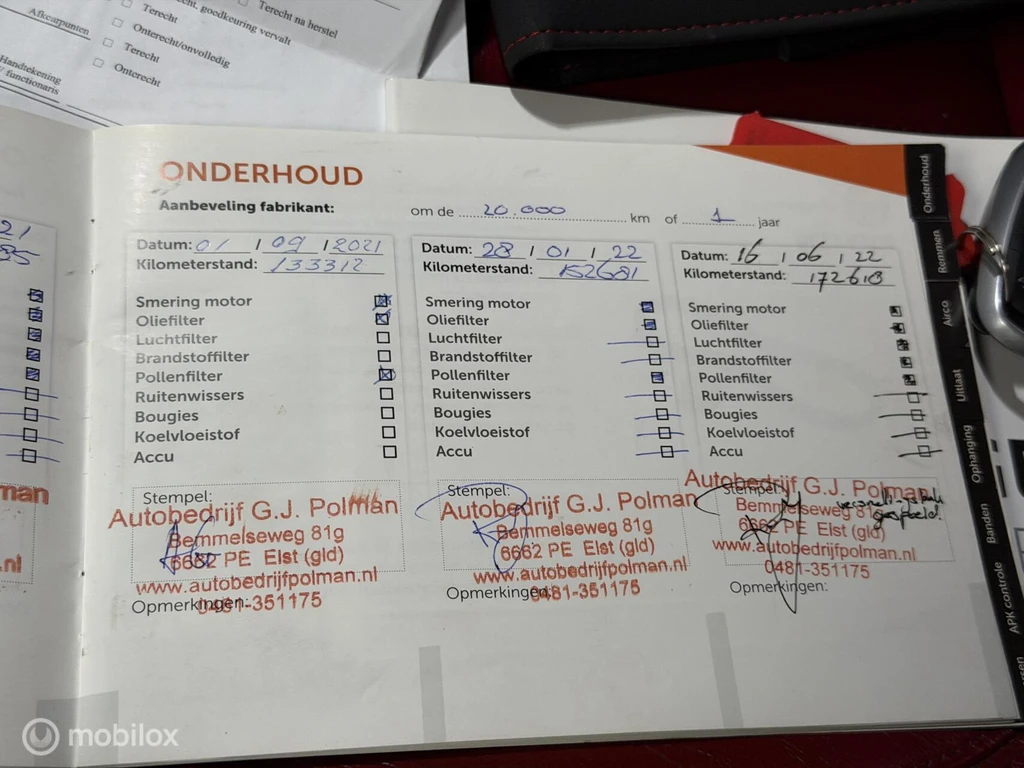 Terecht
Terecht na herstel
goedkeuring vervalt
Afkeurpunten
Onterecht/onvolledig
Terecht
Onterecht
Handtekening
functionaris
21
85
man
.nl
ONDERHOUD
Aanbeveling fabrikant:
om de 20.000 km of 1 jaar
Datum: 01 / 09 / 2021
Kilometerstand: 133312
Smering motor
Oliefilter
Luchtfilter
Brandstoffilter
Pollenfilter
Ruitenwissers
Bougies
Koelvloeistof
Accu
Stempel:
Autobedrijf G.J. Polman
Bemmelseweg 81g
6662 PE Elst (gld)
www.autobedrijfpolman.nl
0481-351175
Opmerkingen:
Datum: 28 / 01 / 22
Kilometerstand: 152681
Smering motor
Oliefilter
Luchtfilter
Brandstoffilter
Pollenfilter
Ruitenwissers
Bougies
Koelvloeistof
Accu
Stempel:
Autobedrijf G.J. Polman
Bemmelseweg 81g
6662 PE Elst (gld)
www.autobedrijfpolman.nl
0481-351175
Opmerkingen:
Datum: 16 / 06 / 22
Kilometerstand: 172610
Smering motor
Oliefilter
Luchtfilter
Brandstoffilter
Pollenfilter
Ruitenwissers
Bougies
Koelvloeistof
Accu
Stempel:
Autobedrijf G.J. Polman
versnellingsbak
gespoeld.
Bemmelseweg 81g
6662 PE Elst (gld)
www.autobedrijfpolman.nl
0481-351175
Opmerkingen:
Onderhoud
Remmen
Airco
Uitlaat
Ophanging
Banden
APK controle
mobilox